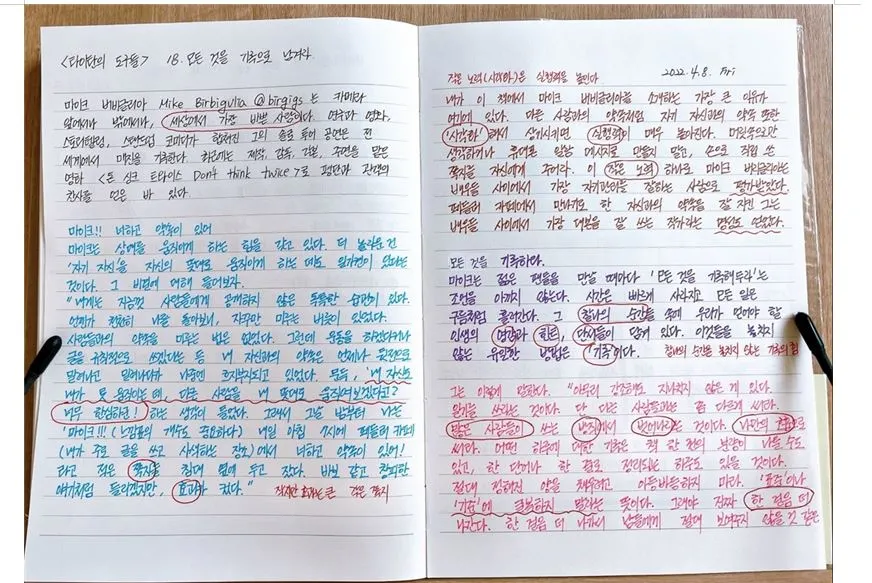 <타이탄의 도구들> 18. 모든 것을 기록으로 남겨라
마이크 버비글리아 Mike Birbiglia @birbigs 는 카메라
앞에서나 밖에서나, 세상에서 가장 바쁜 사람이다. 연극과 영화,
스토리텔링, 스탠드업 코미디가 합쳐진 그의 솔로 투어 공연은 전
세계에서 매진을 기록한다. 최근에는 제작, 감독, 각본, 주연을 맡은
영화 <돈 싱크 트와이스 Don't think twice>로 평단과 관객의
찬사를 얻은 바 있다.
마이크!! 너하고 약속이 있어
마이크는 상대를 움직이게 하는 힘을 갖고 있다. 더 놀라운 건
'자기 자신'을 자신의 뜻대로 움직이게 하는 데도 일가견이 있다는
것이다. 그 비결에 대해 들어보자.
"내게는 지금껏 사람들에게 공개하지 않은 독특한 습관이 있다.
언젠가 천천히 나를 돌아보니, 자꾸만 미루는 버릇이 있었다.
사람들과의 약속을 미루는 법은 없었다. 그런데 운동을 하겠다거나
글을 규칙적으로 쓰겠다는 등 내 자신과의 약속은 언제나 뒷전으로
밀어나고 밀어나다가 나중엔 흐지부지되고 있었다. 문득, '내 자신도
내가 못 움직이는데, 다른 사람을 내 뜻대로 움직여보겠다고?
너무 한심하군!' 하는 생각이 들었다. 그래서 그날 밤부터 나는
'마이크!!! (느낌표의 개수도 중요하다) 내일 아침 7시에 페들러 카페
(내가 주로 글을 쓰고 사색하는 장소)에서 너하고 약속이 있어!
라고 적은 쪽지를 침대 옆에 두고 잤다. 바보 같고 창피한
얘기처럼 들리겠지만, 효과가 컸다." 작지만 효과는 큰 작은 쪽지
작은 노력(시각화)은 실행력을 높인다 2022.4.8. Fri
내가 이 책에서 마이크 버비글리아를 소개하는 가장 큰 이유가
여기에 있다. 다른 사람과의 약속처럼 자기 자신과의 약속 또한
'시각화'해서 상기시키면 실행력이 매우 높아진다. 머릿속으로만
생각하거나 휴대폰 일정 메시지로 만들지 말고, 손으로 직접 쓴
쪽지를 자신에게 주어라. 이 작은 노력 하나로 마이크 버비글리아는
배우들 사이에서 가장 자기관리를 잘하는 사람으로 평가받았다.
페들러 카페에서 만나기로 한 자신과의 약속을 잘 지킨 그는
배우들 사이에서 가장 대본을 잘 쓰는 작가라는 명성도 얻었다.
모든 것을 기록하라.
마이크는 젊은 팬들을 만날 때마다 '모든 것을 기록해두라'는
조언을 아끼지 않는다. 시간은 빠르게 사라지고 모든 일은
구름처럼 흘러간다. 그 찰나의 순간들 속에 우리가 얻어야 할
인생의 영감과 힌트, 단서들이 담겨 있다. 이것들을 놓치지
않는 유일한 방법은 '기록'이다. 찰나의 순간을 놓치지 않는 기록의 힘
그는 이렇게 말한다. "아무리 강조해도 지나치지 않은 게 있다.
일기를 쓰라는 것이다. 단 다른 사람들과는 좀 다르게 써라.
많은 사람들이 쓰는 방식에서 벗어나라는 것이다. 나만의 힘으로
써라. 어떤 하루에 대한 기록은 책 한 권의 분량이 나올 수도
있고, 한 단어나 한 줄로 정리되는 하루도 있을 것이다.
절대 정해진 양을 채우려고 아등바등하지 마라. '표준'이나
'기준'에 굴복하지 말라는 뜻이다. 그래야 진짜 한 걸음 더
나간다. 한 걸음 더 나가서 남들에게 절대 보여주지 않을 것 같은